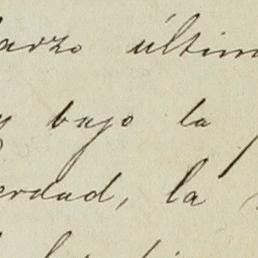 arzo últim
y bajo la p
erdad, la